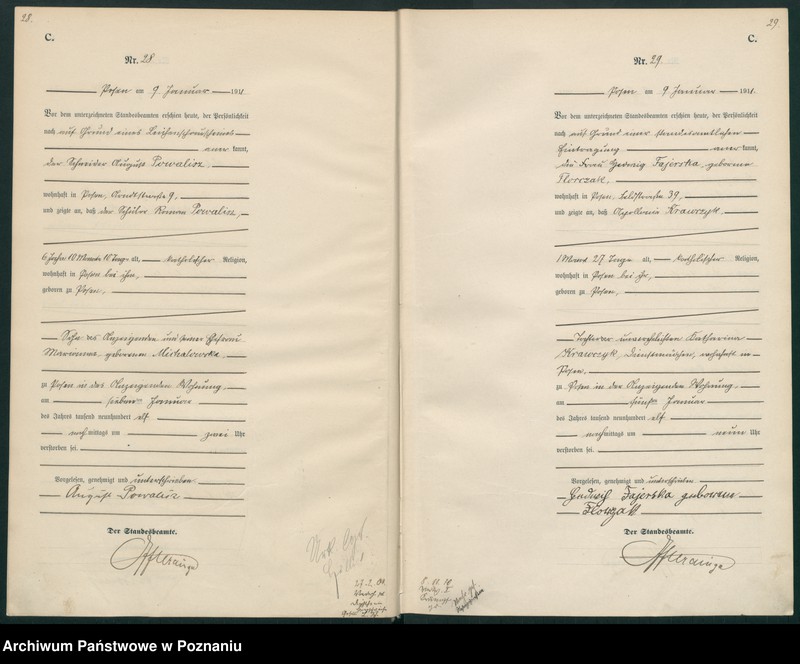 28.
C.
Nr. 28
Posen am 9 Januar 1911.
Vor dem unterzeichneten Standesbeamten erschien heute, der Persönlichkeit
nach auf Grund eines Leichenschauscheines
aner kannt,
der Schneider August Powalisz,
wohnhaft in Posen, 9,
und zeigte an, daß der Schüler Roman Powalisz,
6 Jahre 10 Monate 10 Tage alt, katholischer Religion,
wohnhaft in Posen bei ihm,
geboren zu Posen,
Sohn des Anzeigenden und seiner Ehefrau
Marianna, geborenen Michalowska
zu Posen in des Anzeigenden Wohnung,
am sieben Januar
des Jahres tausend neunhundert elf
nachmittags um zwei Uhr
verstorben sei.
Vorgelesen, genehmigt und unterschrieben
August Powalisz
Der Standesbeamte.
29
C.
Nr. 29
Posen am 9 Januar 1911.
Vor dem unterzeichneten Standesbeamten erschien heute, der Persönlichkeit
nach auf Grund einer standesamtlichen
Eintragung aner kannt,
die Frau Hedwig Fajerska, geborene
wohnhaft in Posen, 39,
und zeigte an, daß Apollonia Krawczyk
1 Monat 27 Tage alt, katholischer Religion,
wohnhaft in Posen bei ihr,
geboren zu Posen,
Tochter der unverehelichten Katharina
Krawczyk, Dienstmädchen, wohnhaft in
Posen,
zu Posen in der Anzeigenden Wohnung
am fünf Januar
des Jahres tausend neunhundert elf
nachmittags um neun Uhr
verstorben sei.
Vorgelesen, genehmigt und unterschrieben
Hedwig Fajerska geborene
Der Standesbeamte.
Archiwum Państwowe w Poznaniu